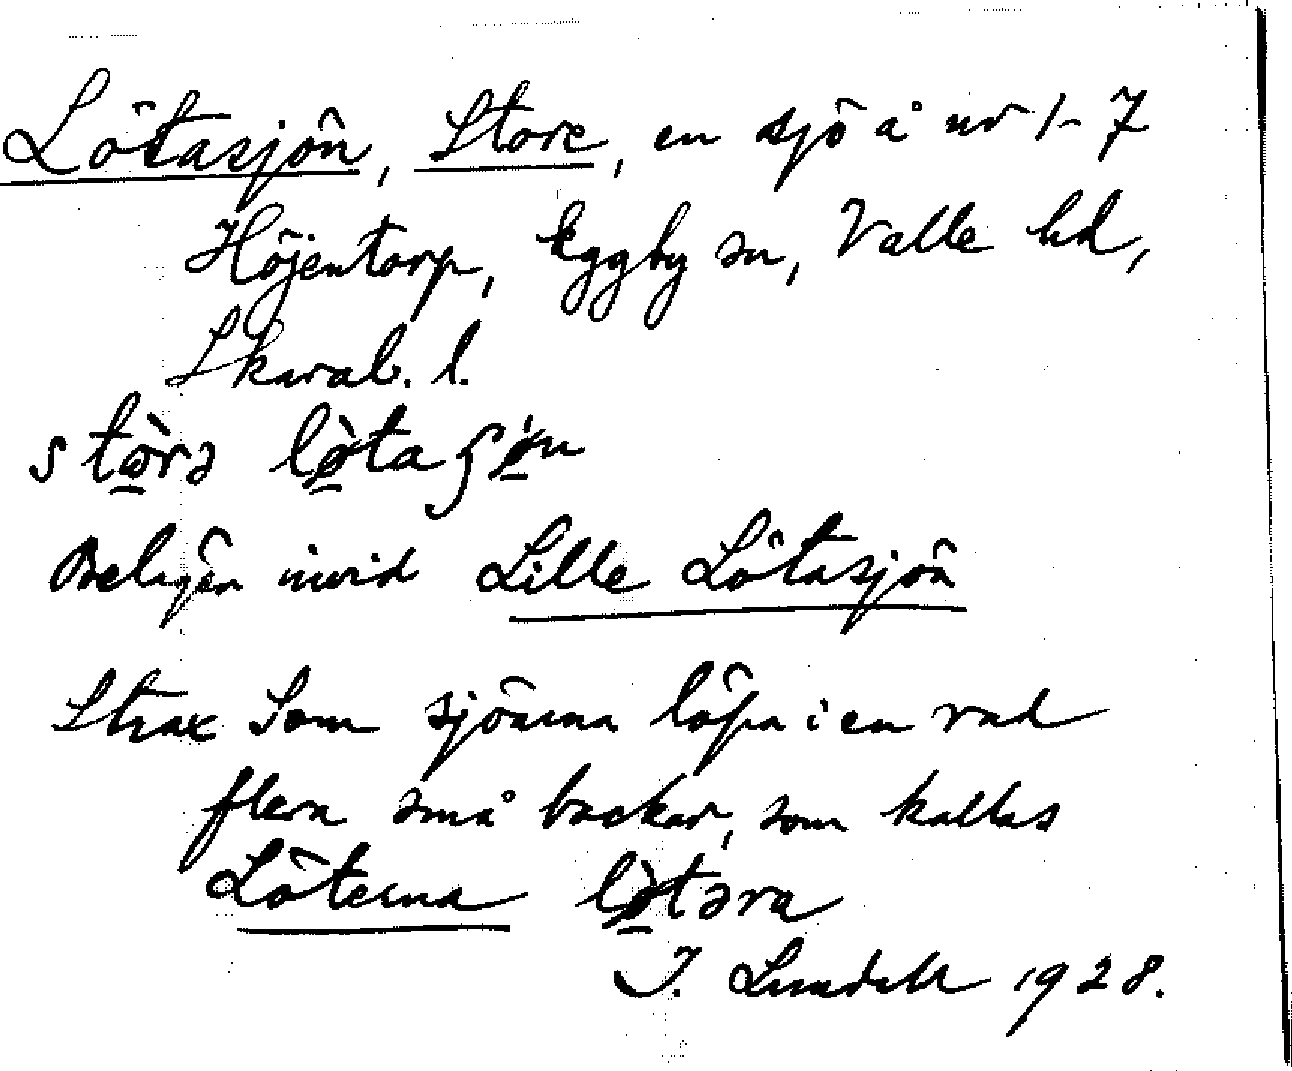 Lötasjön, Store, en sjö å nr 1-7
Höjentorp, Eggby sn, Valle hd,
Skarab. l.
stòrə lø̀ta ʃø̀n
Belägen invid Lille Lötasjön
Strax S om sjöarna löpa i en rad
flera små backar, som kallas
Löterna lø̀tərα
J. Lundell 1928.